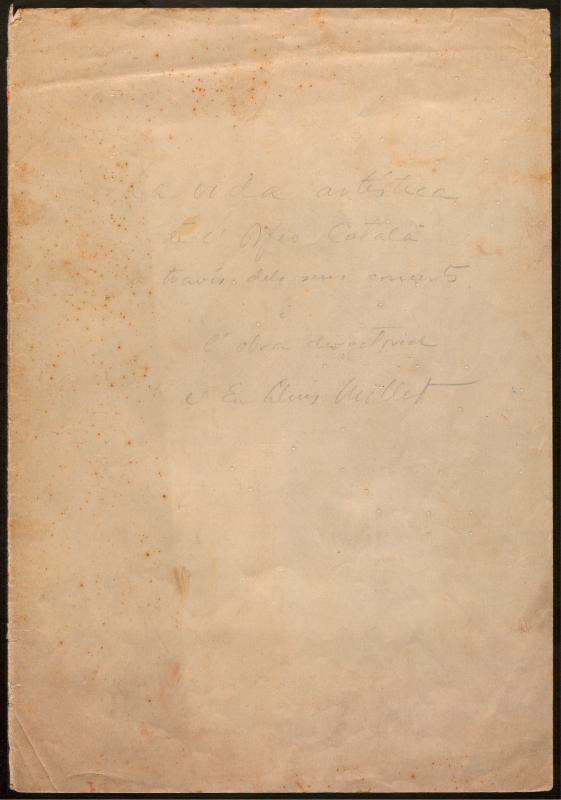 a vida artística
de l' Orfeó Català
a través dels seus concerts
i
l' obra directorial
d' En Lluis Millet